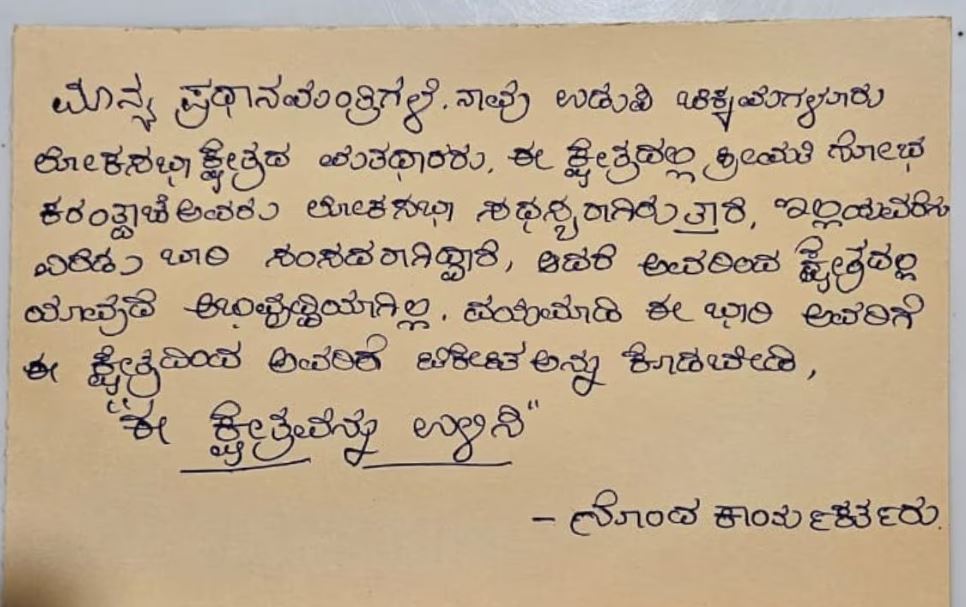 ಮಾನ್ಯ ಪ್ರಧಾನಮಂತ್ರಿಗಳೆ. ನಾವು ಉಡುಪಿ ಚಿಕ್ಕಮಗಳೂರು
ಲೋಕಸಭಾ ಕ್ಷೇತ್ರದ ಮತಧಾರರು, ಈ ಕ್ಷೇತ್ರದಲ್ಲಿ ಶ್ರೀಮತಿ ಸೋಭ
ಕರಂದ್ಲಾಜೆ ಅವರು ಲೋಕಸಭಾ ಸಧಸ್ಯರಾಗಿರುತ್ತಾರೆ, ಇಲ್ಲಿಯವರೆಗು
ಎರಡು ಬಾರಿ ಸಂಸದರಾಗಿದ್ದಾರೆ, ಆದರೆ ಅವರಿಂದ ಕ್ಷೇತ್ರದಲ್ಲಿ
ಯಾವುದೆ ಅಭಿವೃದ್ಧಿಯಾಗಿಲ್ಲ. ದಯಮಾಡಿ ಈ ಭಾರಿ ಅವರಿಗೆ
ಈ ಕ್ಷೇತ್ರದಿಂದ ಅವರಿಕೆ ಟಿಕೇಟ್ ಅನ್ನು ಕೊಡಬೇಡಿ,
"ಈ ಕ್ಷೇತ್ರವನ್ನು ಉಳಿಸಿ"
- ನೊಂದ ಕಾರ್ಯಕರ್ತರು.